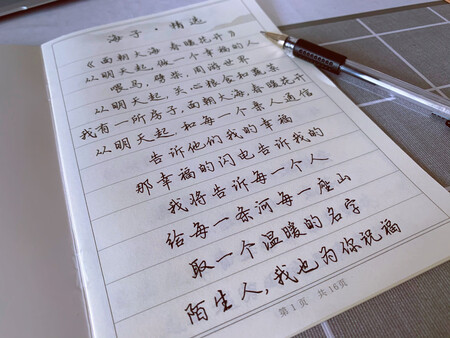 海子·精选
《面朝大海,春暖花开》
从明天起,做一个幸福的人
喂马,劈柴,周游世界
从明天起,关心粮食和蔬菜
我有一所房子,面朝大海,春暖花开
从明天起,和每一个亲人通信
告诉他们我的幸福
那幸福的闪电告诉我的
我将告诉每一个人
给每一条河每一座山
取一个温暖的名字
陌生人,我也为你祝福
第1页 共16页